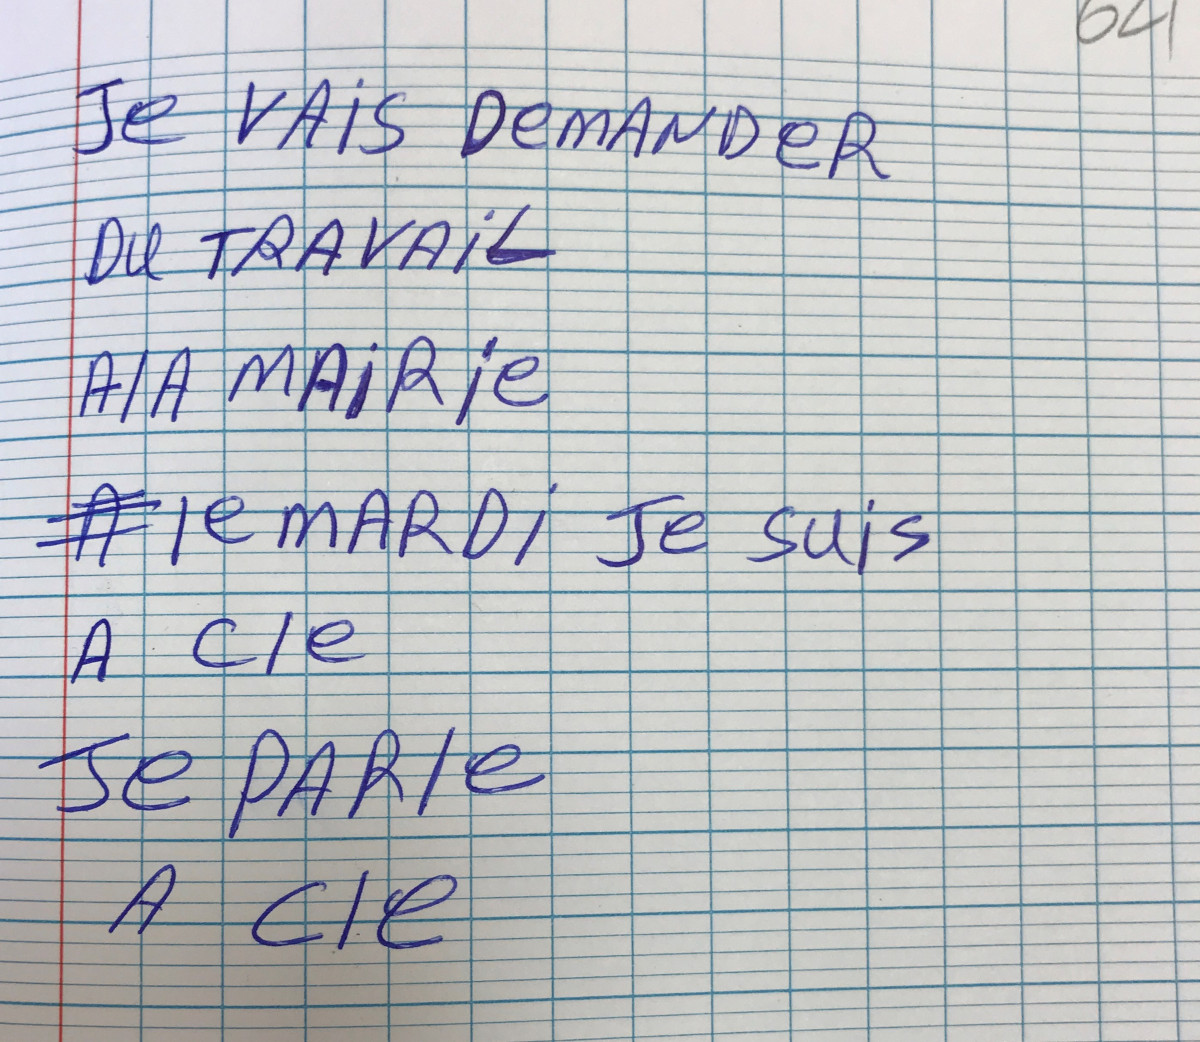 64
Je VAiS DeMANDeR
DU TRAVAiL
A lA MAiRie
A le MARDi Je suis
A Cle
Je PARle
A Cle